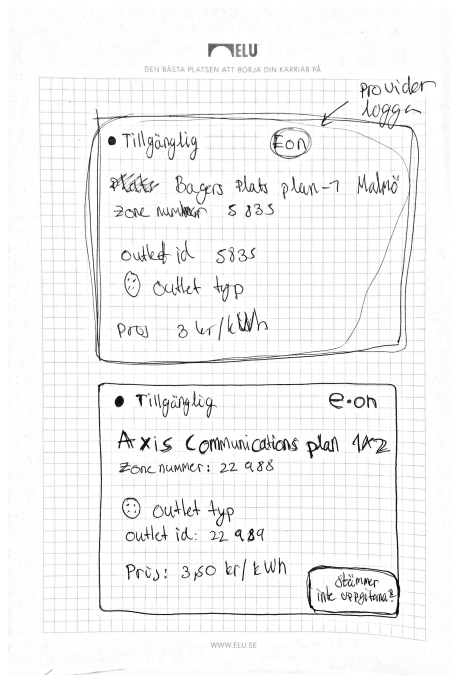 ELU
DEN BÄSTA PLATSEN ATT BÖRJA DIN KARRIÄR PÅ
provider
logga
Tillgänglig
Eon
Bagers plats plan-1 Malmö
zone number 5835
outlet id 5835
outlet typ
pris 3 kr/kWh
Tillgänglig
e.on
Axis Communications plan 1A2
Zone nummer: 22 988
outlet typ
outlet id: 22 989
Pris: 3,50 kr/kWh
Stämmer
inte uppgifterna?
WWW.ELU.SE